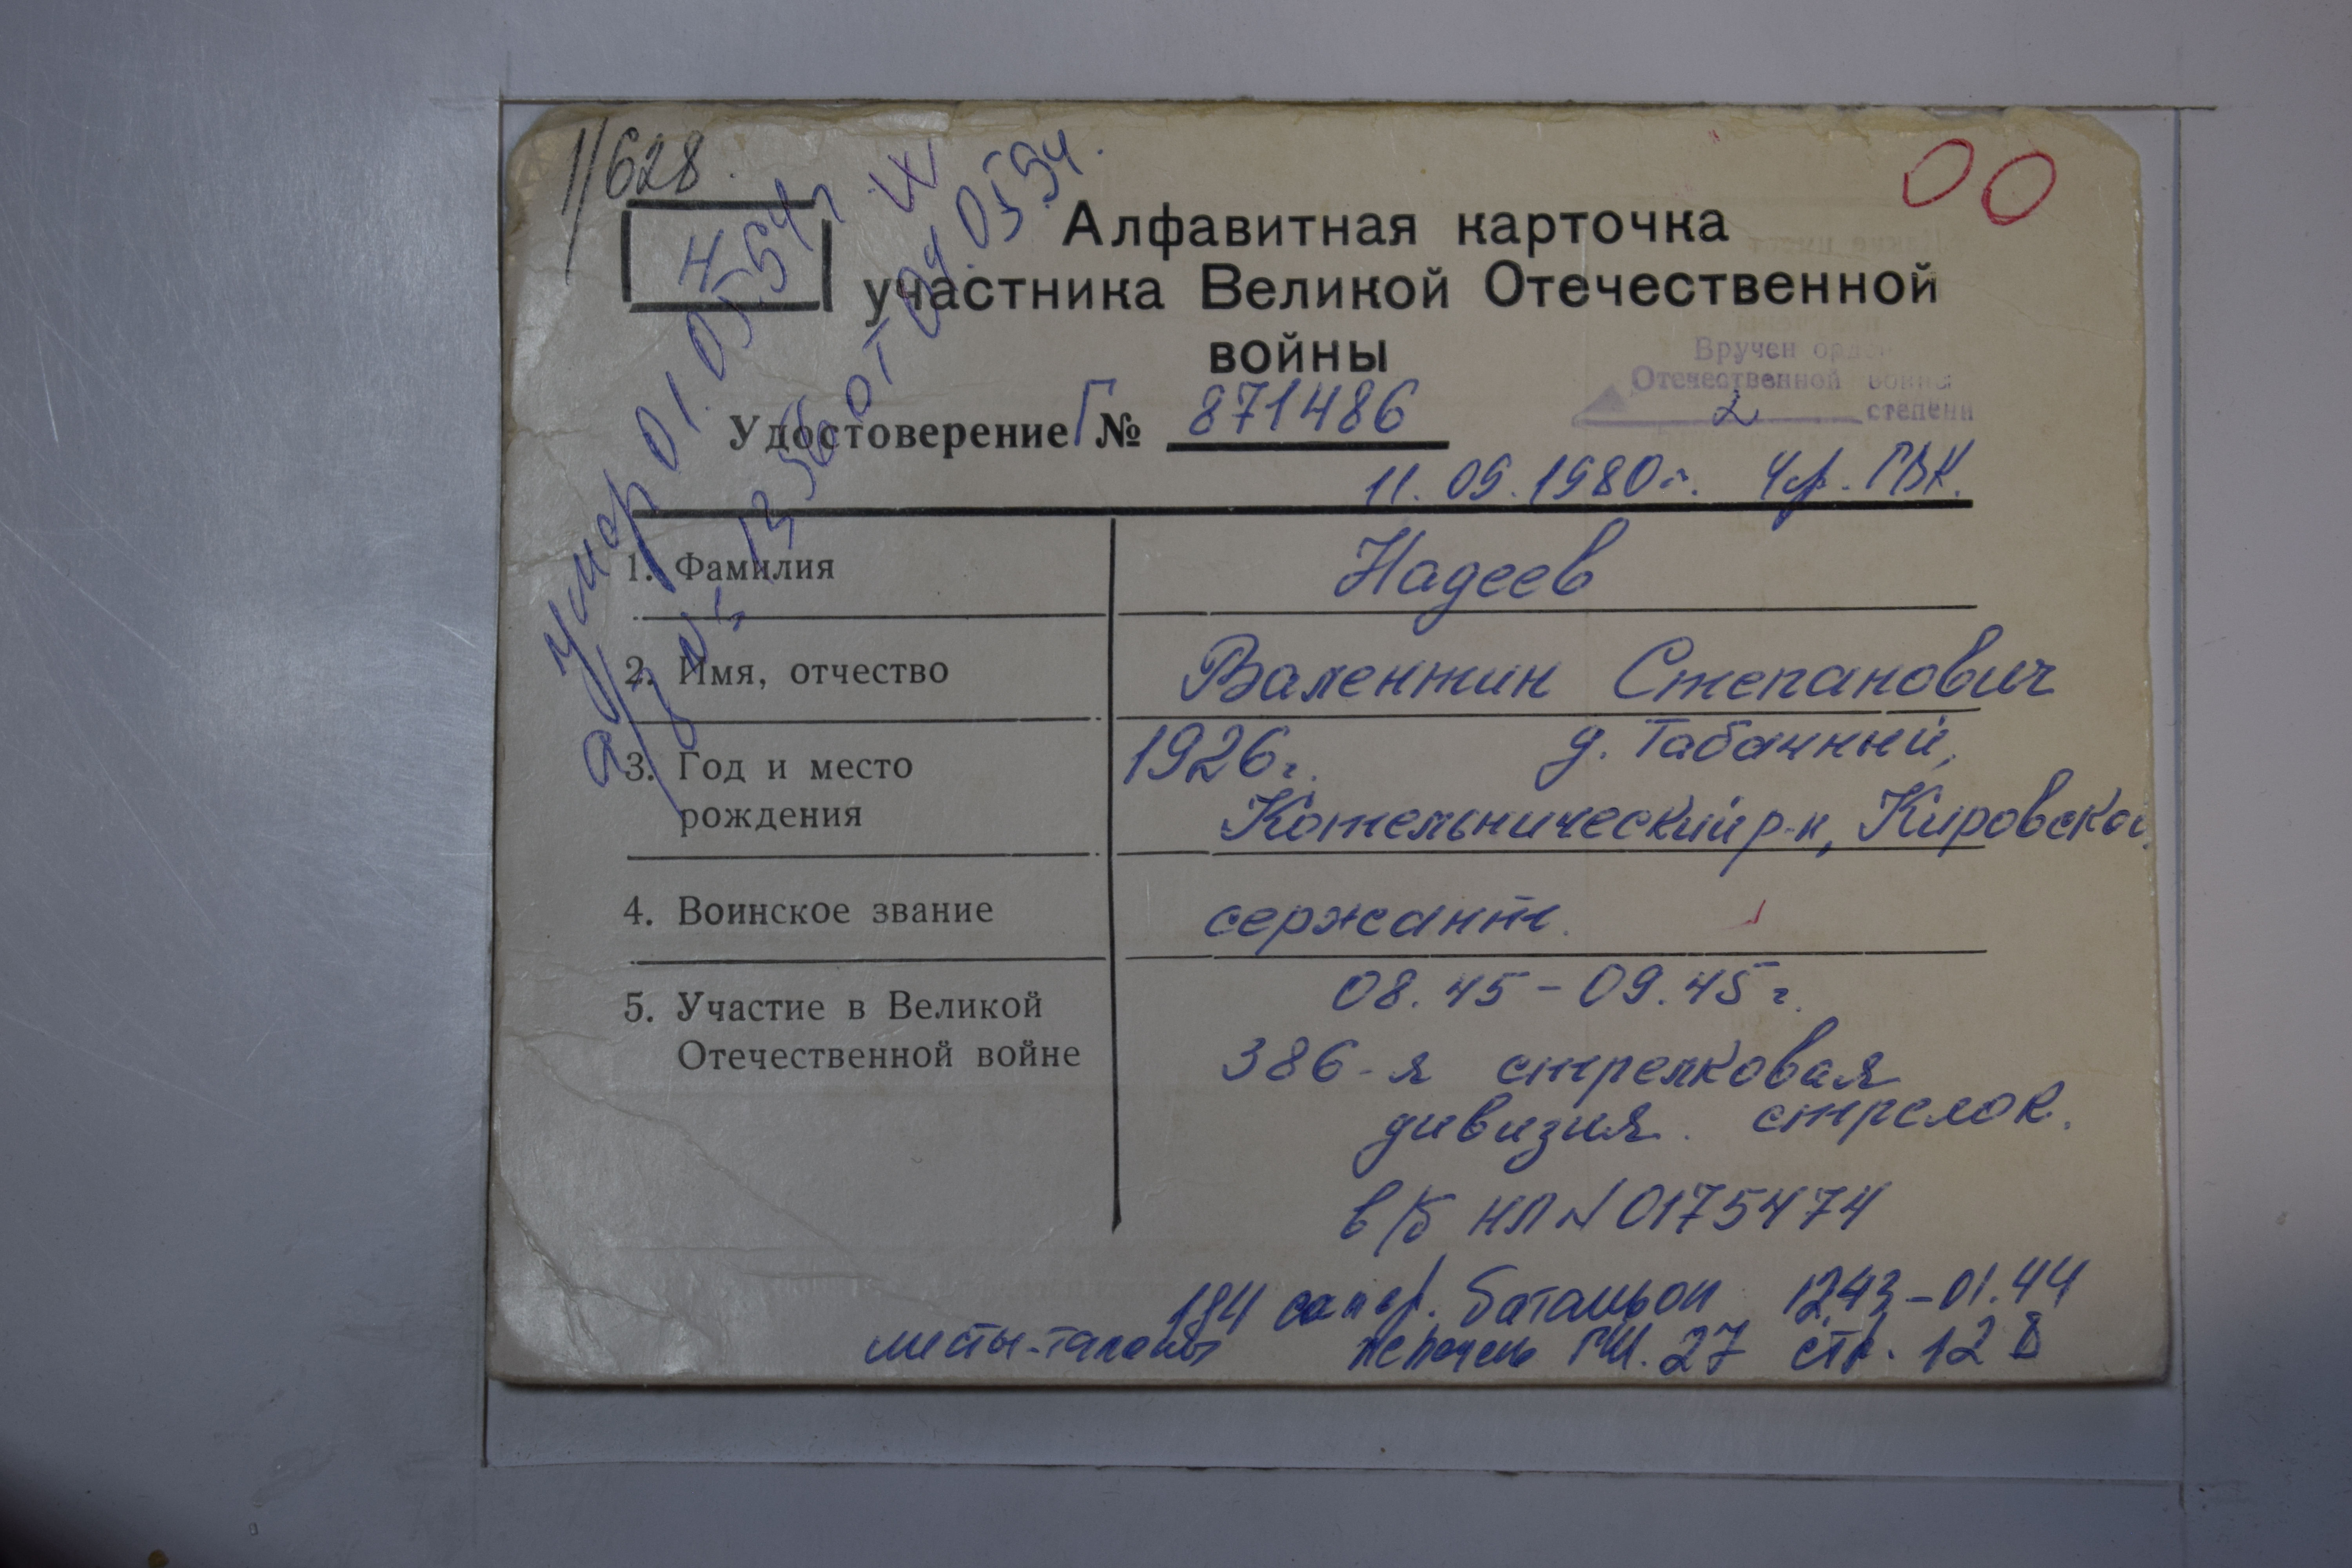 1/628
00
Н
Алфавитная карточка
участника Великой Отечественной
войны
Вручен орден
Отечественной войны
2 степени
Удостоверение Г № 871486
11.09.1980г. Чр. ГВК.
умер 01.05.94г
а/з № 1356 от 04.05.94.
1. Фамилия Надеев
2. Имя, отчество Валентин Степанович
3. Год и место 1926г. д. Табачный,
рождения Котельнический р-н, Кировской
4. Воинское звание сержант.
5. Участие в Великой 08.45-09.45г.
Отечественной войне 386-я стрелковая
дивизия. стрелок.
в/б НП N 0175474
194 сапер. батальон 12.43-01.44
листы-талоны перечень ГШ. 27 стр. 128